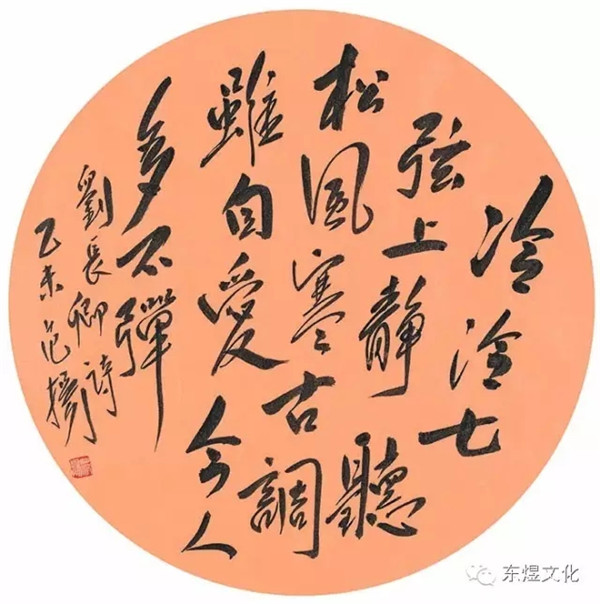 泠泠七
弦上靜聽
松風寒古調
雖自愛今人
多不彈
劉長卿詩
乙未范揚
东煜文化